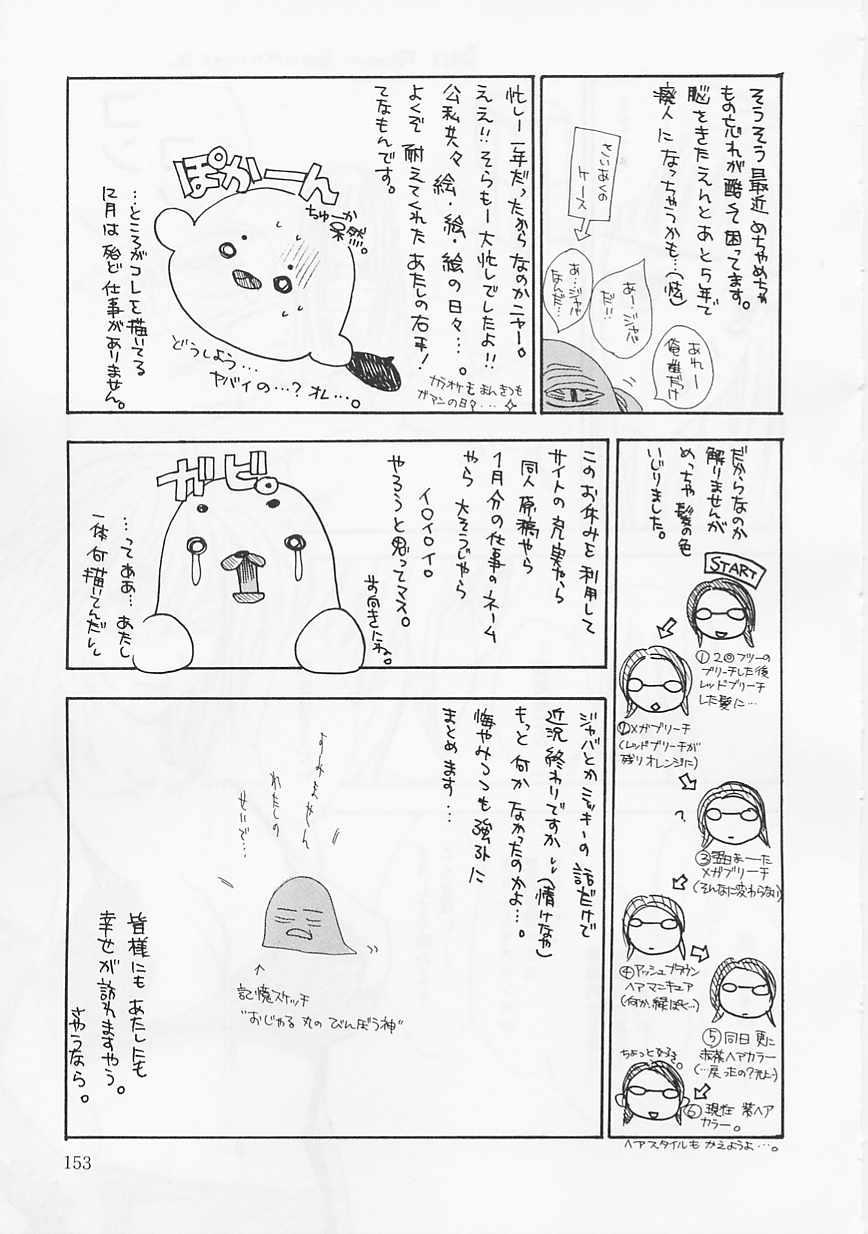 そうそう最近めちゃめちゃ
もの忘れが酷くて困ってます。
脳をきたえんとあと5年で
廃人になっちゃうかも…(怯)
とりあえずの
ケース
あれー
俺誰だっけ
あー…ジャバ
だ!!
あ…ジャバ
なんだ…
忙しー一年だったからなのかニャー。
ええ!!そらもー大忙しでしたよ!!
公私共々絵・絵・絵の日々…。
よくぞ耐えてくれたあたしの右手!
てなもんです。
カラオケもまんきつも
ガマンの日々…
ぽかーん
ちゅーか
呆然。
…ところがコレを描いてる
12月は殆ど仕事がありません。
どうしよう…
ヤバイの…?オレ…。
だからなのか
解りませんが
めっちゃ髪の色
いじりました。
START
①2回フツーの
ブリーチした後
レッドブリーチ
した髪に…
②メガブリーチ
(レッドブリーチが
残りオレンジに)
?
③翌日まーた
メガブリーチ
(そんなに変わらない)
④アッシュブラウン
ヘアマニキュア
(何か、緑ぽく…)
⑤同日更に
赤茶ヘアカラー
(…戻ったの?元に…)
ちょっと好き。
⑥現在紫ヘア
カラー。
ヘアスタイルもかえようよ…。
このお休みを利用して
サイトの充実やら
同人原稿やら
1月分の仕事のネーム
やら大そうじやら
イロイロイロ
やろうと思ってマス。
前向きにね。
ガビ。
…ってああ…あたし
一体何描いてんだし
ジャバとかミッキーの話だけで
近況終わりですか…(情けなや)
もっと何かなかったのかよ…。
悔やみつつも強引に
まとめます…
すみません
わたしの
せいで…
↑
記憶スケッチ
"おじゃる丸のびんぼう神"
皆様にもあたしにも
幸せが訪れますやう。
さやうなら。
153